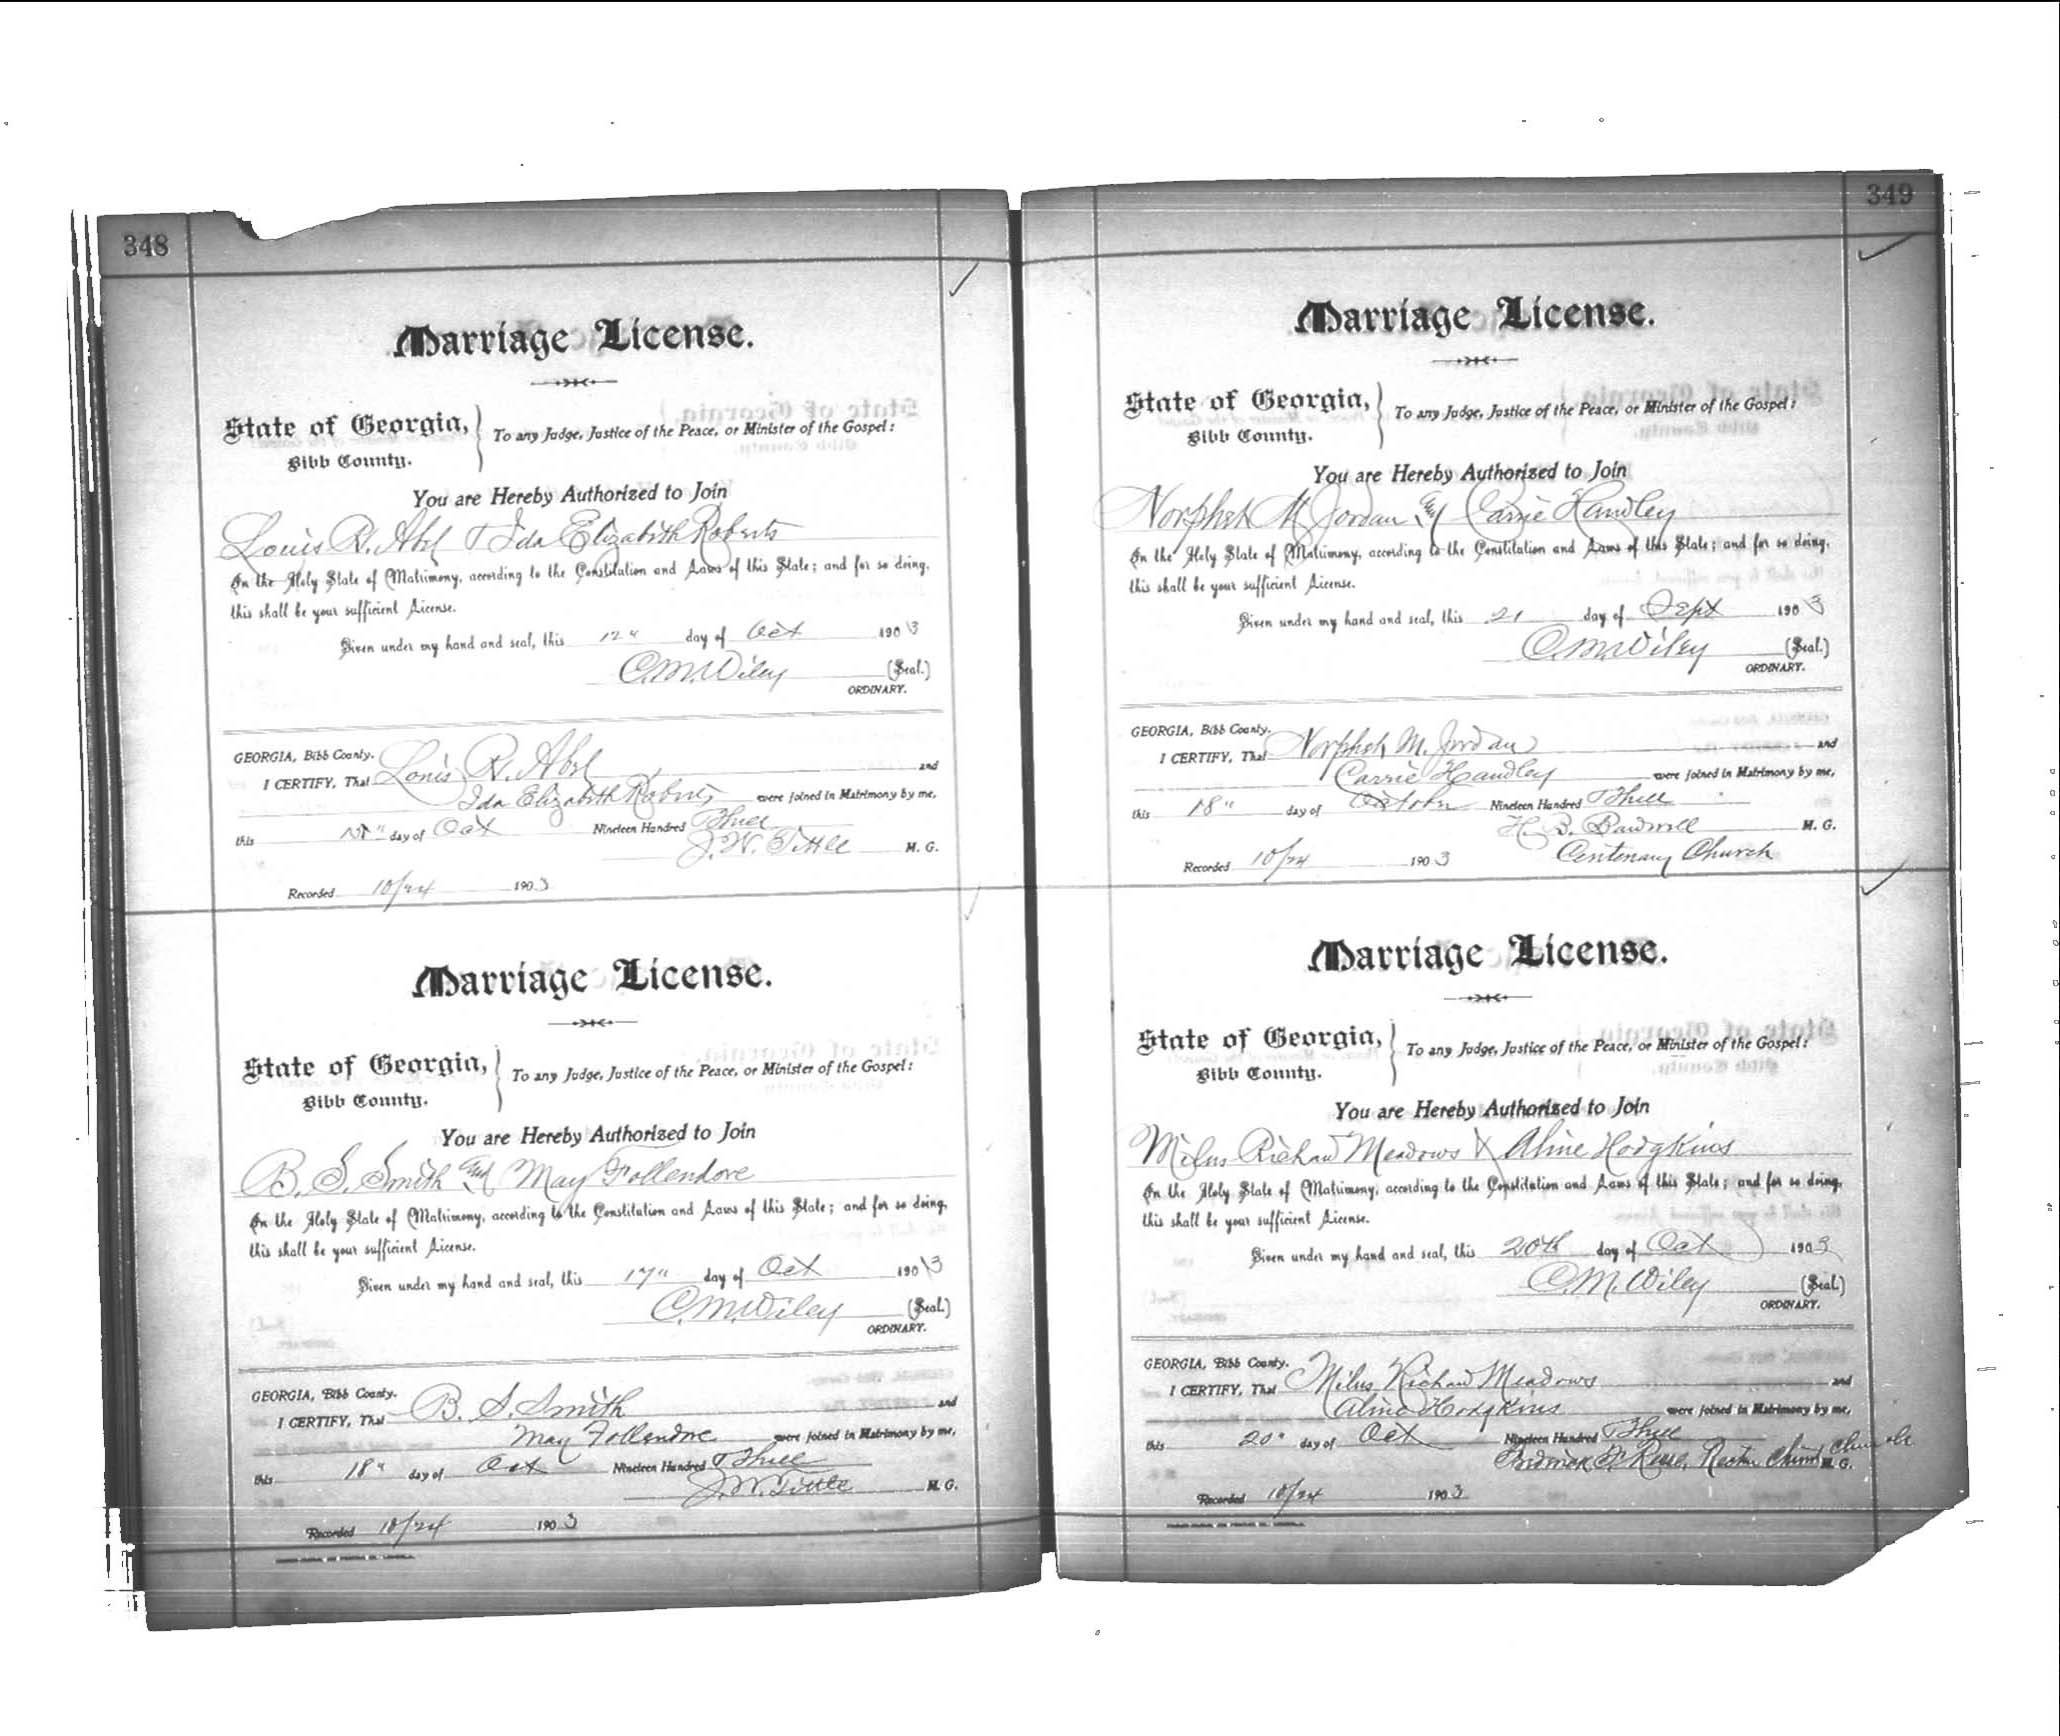 348
Marriage License.
State of Georgia,
Bibb County.
To any Judge, Justice of the Peace, or Minister of the Gospel:
You are Hereby Authorized to Join
Louis R. Abel & Ida Elizabeth Roberts
In the Holy State of Matrimony, according to the Constitution and Laws of this State; and for so doing,
this shall be your sufficient License.
Given under my hand and seal, this 12" day of Oct 1903
C. M. Wiley (Seal.)
ORDINARY.
GEORGIA, Bibb County.
I CERTIFY, That Louis R. Abel and
Ida Elizabeth Roberts were joined in Matrimony by me,
this day of Oct Nineteen Hundred Three
J. W. Tittle M. G.
Recorded 10/24 1903
Marriage License.
State of Georgia,
Bibb County.
To any Judge, Justice of the Peace, or Minister of the Gospel:
You are Hereby Authorized to Join
B. S. Smith and May Follendore
In the Holy State of Matrimony, according to the Constitution and Laws of this State; and for so doing,
this shall be your sufficient License.
Given under my hand and seal, this 17" day of Oct 1903
C. M. Wiley (Seal.)
ORDINARY.
GEORGIA, Bibb County.
I CERTIFY, That B. S. Smith and
May Follendore were joined in Matrimony by me,
this 18" day of Oct Nineteen Hundred Three
J. W. Tittle M. G.
Recorded 10/24 1903
349
Marriage License.
State of Georgia,
Bibb County.
To any Judge, Justice of the Peace, or Minister of the Gospel:
You are Hereby Authorized to Join
Norphet M. Jordan and Carrie Handley
In the Holy State of Matrimony, according to the Constitution and Laws of this State; and for so doing,
this shall be your sufficient License.
Given under my hand and seal, this 21 day of Sept 1903
C. M. Wiley (Seal.)
ORDINARY.
GEORGIA, Bibb County.
I CERTIFY, That Norphet M. Jordan and
Carrie Handley were joined in Matrimony by me,
this 18" day of October Nineteen Hundred Three
H. B. M. G.
Centenary Church
Recorded 10/24 1903
Marriage License.
State of Georgia,
Bibb County.
To any Judge, Justice of the Peace, or Minister of the Gospel:
You are Hereby Authorized to Join
Milus Richard Meadows & Aline Hodgkins
In the Holy State of Matrimony, according to the Constitution and Laws of this State; and for so doing,
this shall be your sufficient License.
Given under my hand and seal, this 20th day of Oct 1903
C. M. Wiley (Seal.)
ORDINARY.
GEORGIA, Bibb County.
I CERTIFY, That Milus Richard Meadows and
Aline Hodgkins were joined in Matrimony by me,
this 20" day of Oct Nineteen Hundred Three
F. Reese, Rector Christ Church M. G.
Recorded 10/24 1903